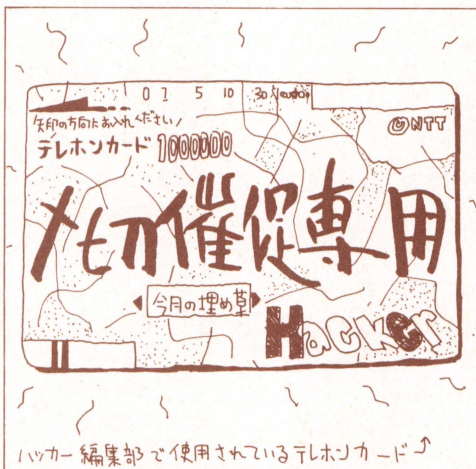 0 1 5 10 30
矢印の方向にお入れください
NTT
テレホンカード 1000000
〆切催促専用
今月の埋め草
Hacker
ハッカー編集部で使用されているテレホンカード